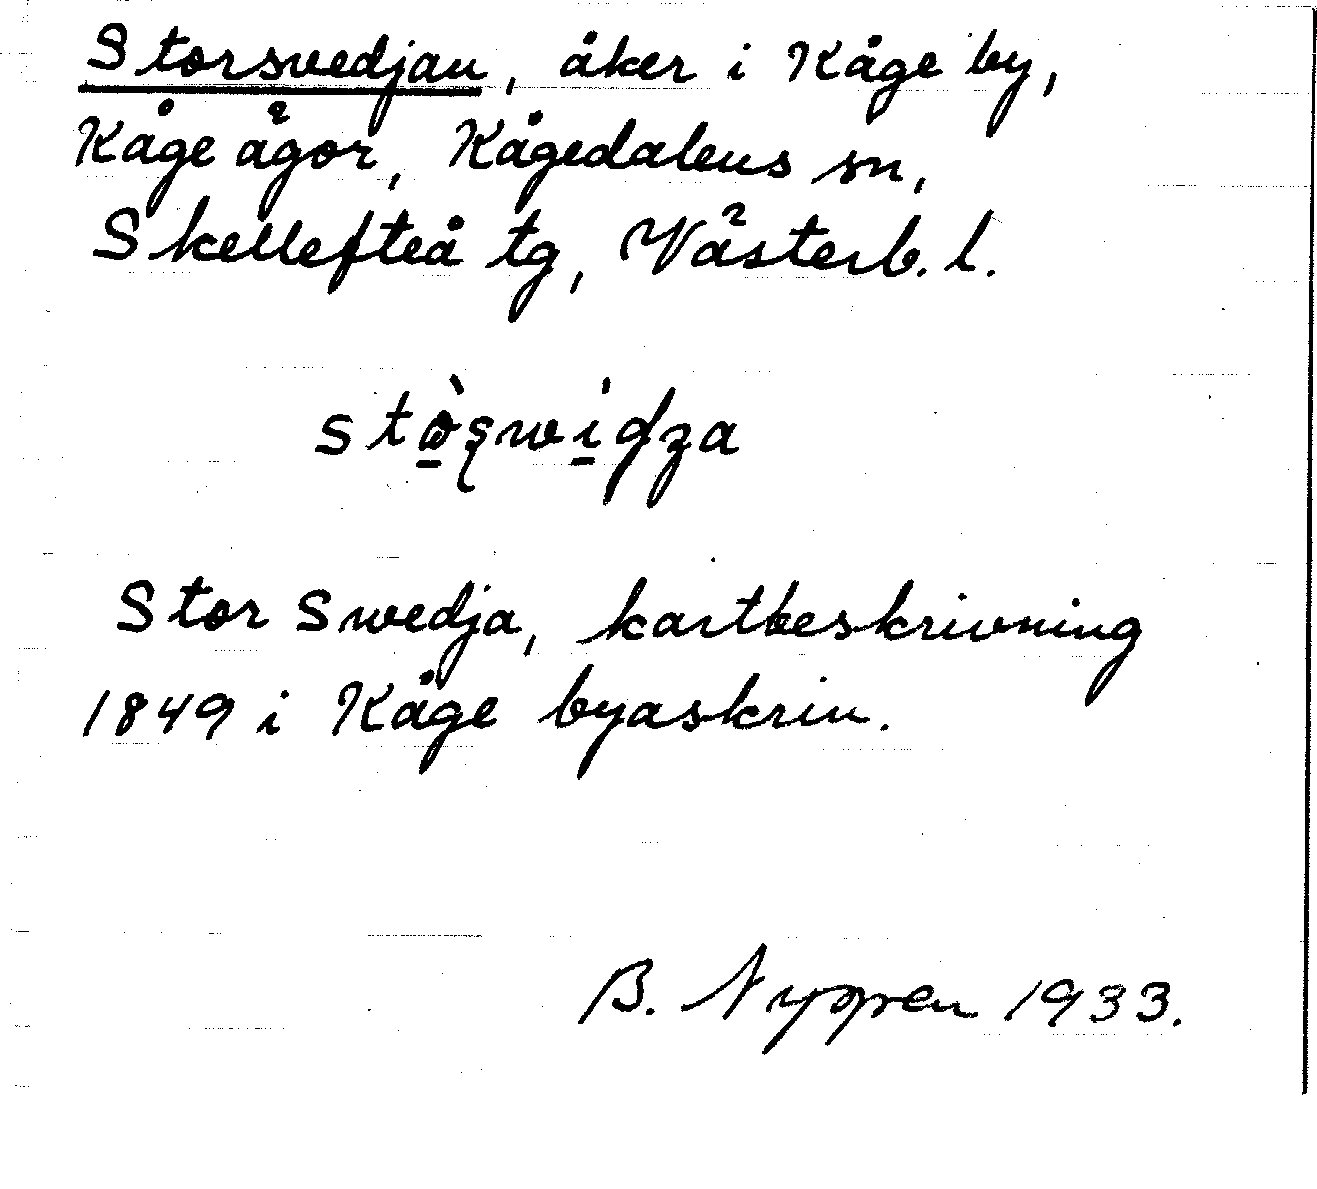 Storsvedjan, åker i Kåge by,
Kåge ägor, Kågedalens sn,
Skellefteå tg, Västerb. l.
Stor Swedja, kartbeskrivning
1849 i Kåge byaskrin.
B. Nygren 1933.